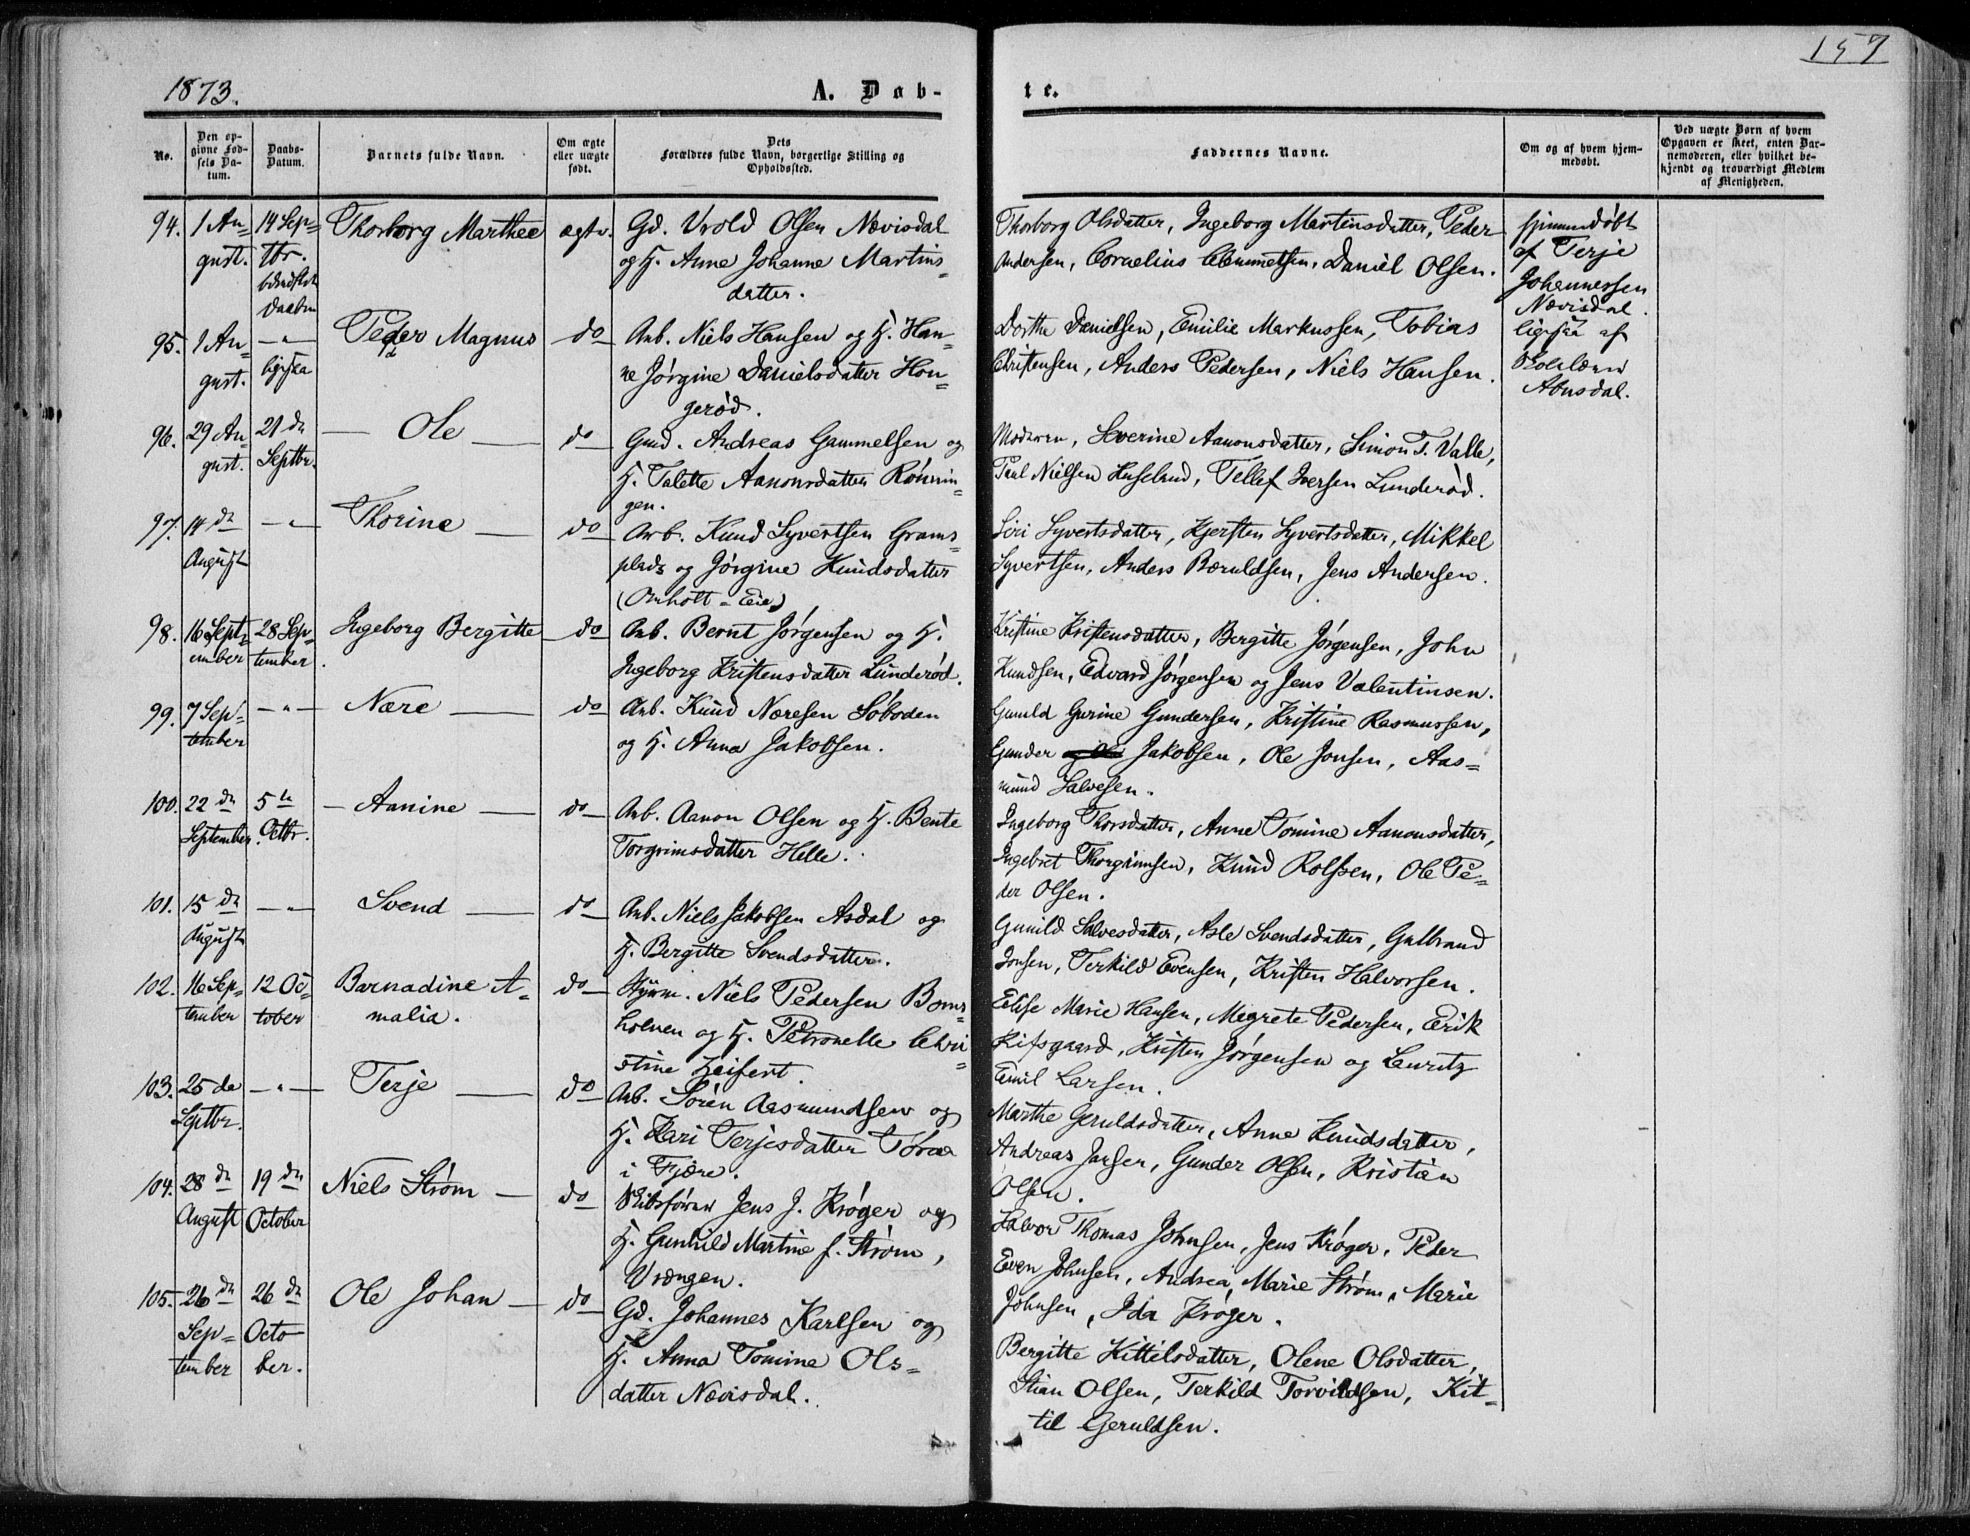 157
1873.
A. Døb-
te.
No.
Den op-
givne Fød-
sels Da-
tum.
Daabs-
Datum.
Barnets fulde Navn.
Om ægte
eller uægte
født.
Dets
Forældres fulde Navn, borgerlige Stilling og
Opholdssted.
Faddernes Navne.
Om og af hvem hjem-
medøbt.
Ved uægte Børn af hvem
Opgaven er skeet, enten Bar-
nemoderen, eller hvilket be-
kjendt og troværdigt Medlem
af Menigheden.
94.
1 Au-
gust.
14 Sep-
tbr.
bekræftet
Daaben
Thorborg Marthee
ægte.
Gd. Vrold Olsen Nævisdal
og H. Anne Johanne Martins-
datter.
Thorborg Olsdatter, Ingeborg Martinsdatter, Peder
Andersen, Cornelius Clemmetsen, Daniel Olsen.
hjemmedøbt
af Terje
Johannessen
Nævisdal.
95.
1 Au-
gust.
— " —
ligesaa
Peder Magnus
do
Arb. Niels Hansen og H. Han-
ne Jørgine Danielsdatter Hon-
gerød.
Dorthe Danielsen, Emilie Markussen, Tobias
Christensen, Anders Pedersen, Niels Hansen.
ligesaa af
Skolelærer
Abusdal.
96.
29 Au
gust.
21 de
Septbr.
— Ole —
do
Gmd. Andreas Gammelsen og
H. Talette Aanonsdatter Rønnin-
gen.
Moderen, Severine Aanonsdatter, Simon T. Valle,
Paul Nielsen Huselund, Tellef Iversen Lunderød.
97.
14 de
August
— " —
Thorine —
do
Arb. Knud Syvertsen Grams-
plads og Jørgine Knudsdatter
(Omholt-Eie)
Siri Syvertsdatter, Kjersten Syvertsdatter, Mikkel
Syvertsen, Anders Bæruldsen, Jens Andersen.
98.
16 Sept-
ember
28 Sep-
tember.
Ingeborg Bergitte
do
Arb. Bernt Jørgensen og H.
Ingeborg Kristensdatter Lunderød.
Kristine Kristensdatter, Bergitte Jørgensen, John
Knudsen, Edvard Jørgensen og Jens Valentinsen.
99.
7 Sep-
tember
— " —
Nære —
do
Arb. Knud Næresen Søboden
og H. Anna Jakobsen.
Gunild Gurine Gundersen, Kristine Rasmussen,
Gunder Jakobsen, Ole Jonsen, Aas-
mund Salvesen.
100.
22 de
September.
5te
Octbr.
— Aanine —
do
Arb. Aanon Olsen og H. Bente
Torgrimsdatter Helle.
Ingeborg Thorsdatter, Anne Tomine Aanonsdatter,
Ingebret Thorgrimsen, Knud Rolfsen, Ole Pe-
der Olsen.
101.
15 de
August
— " —
Svend —
do
Arb. Niels Jakobsen Asdal og
H. Bergitte Svendsdatter.
Gunild Salvesdatter, Asle Svendsdatter, Gulbrand
Jonsen, Terkild Evensen, Kristen Halvorsen.
102.
16 Sep-
tember
12 Oc-
tober
Barnadine A-
malia.
do
Styrm. Niels Pedersen Boms-
holmen og H. Petronelle Chri-
stine Zeifert.
Elise Marie Hansen, Megrete Pedersen, Erik
Risgaard, Kristen Jørgensen og Lauritz
Emil Larsen.
103.
25 de
Septbr.
— " —
Terje —
do
Arb. Søren Aasmundsen og
H. Kari Terjesdatter Tøraa
i Fjære.
Marthe Geruldsdatter, Anne Knudsdatter,
Andreas Jansen, Gunder Olsen, Kristian
Olsen.
104.
28 de
August
19 de
October
Niels Strøm —
do
Skibsfører Jens J. Krøger og
H. Gunhild Martine f. Strøm,
Vrængen.
Halvor Thomas Johnsen, Jens Krøger, Peder
Even Johnsen, Andrea Marie Strøm, Marie
Johnsen, Ida Krøger.
105.
26 de
Sep-
tember
26 de
Octo-
ber.
Ole Johan —
do
Gd. Johannes Karlsen og
H. Anna Tomine Ols-
datter Nævisdal.
Bergitte Kittelsdatter, Olene Olsdatter,
Stian Olsen, Terkild Torvildsen, Kit-
til Geruldsen.